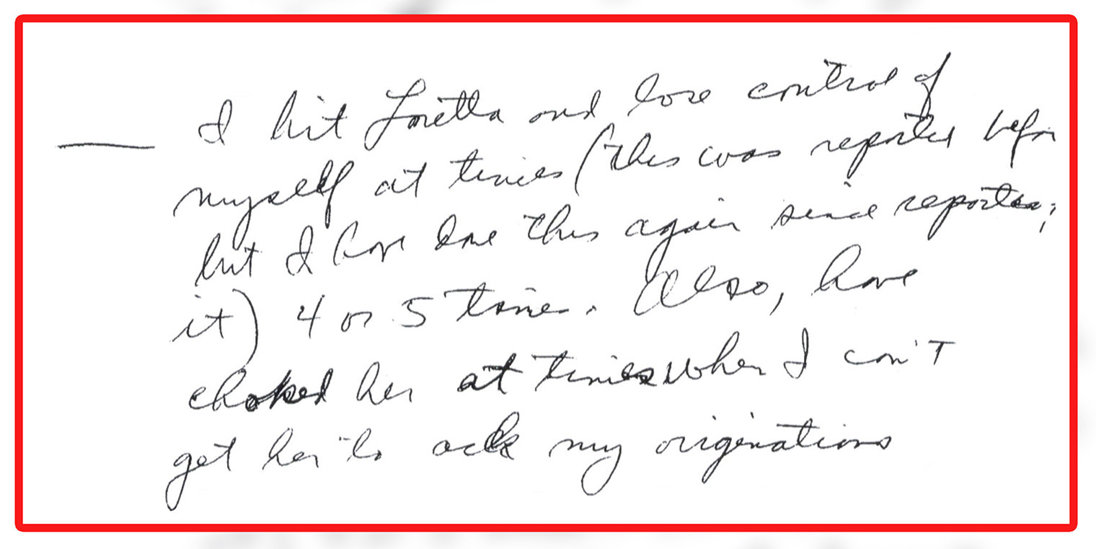 — I hit Loretta and lose control of
myself at times (this was reported before
but I have done this again since reporting
it) 4 or 5 times. Also, have
choked her at times when I can't
get her to ack my originations